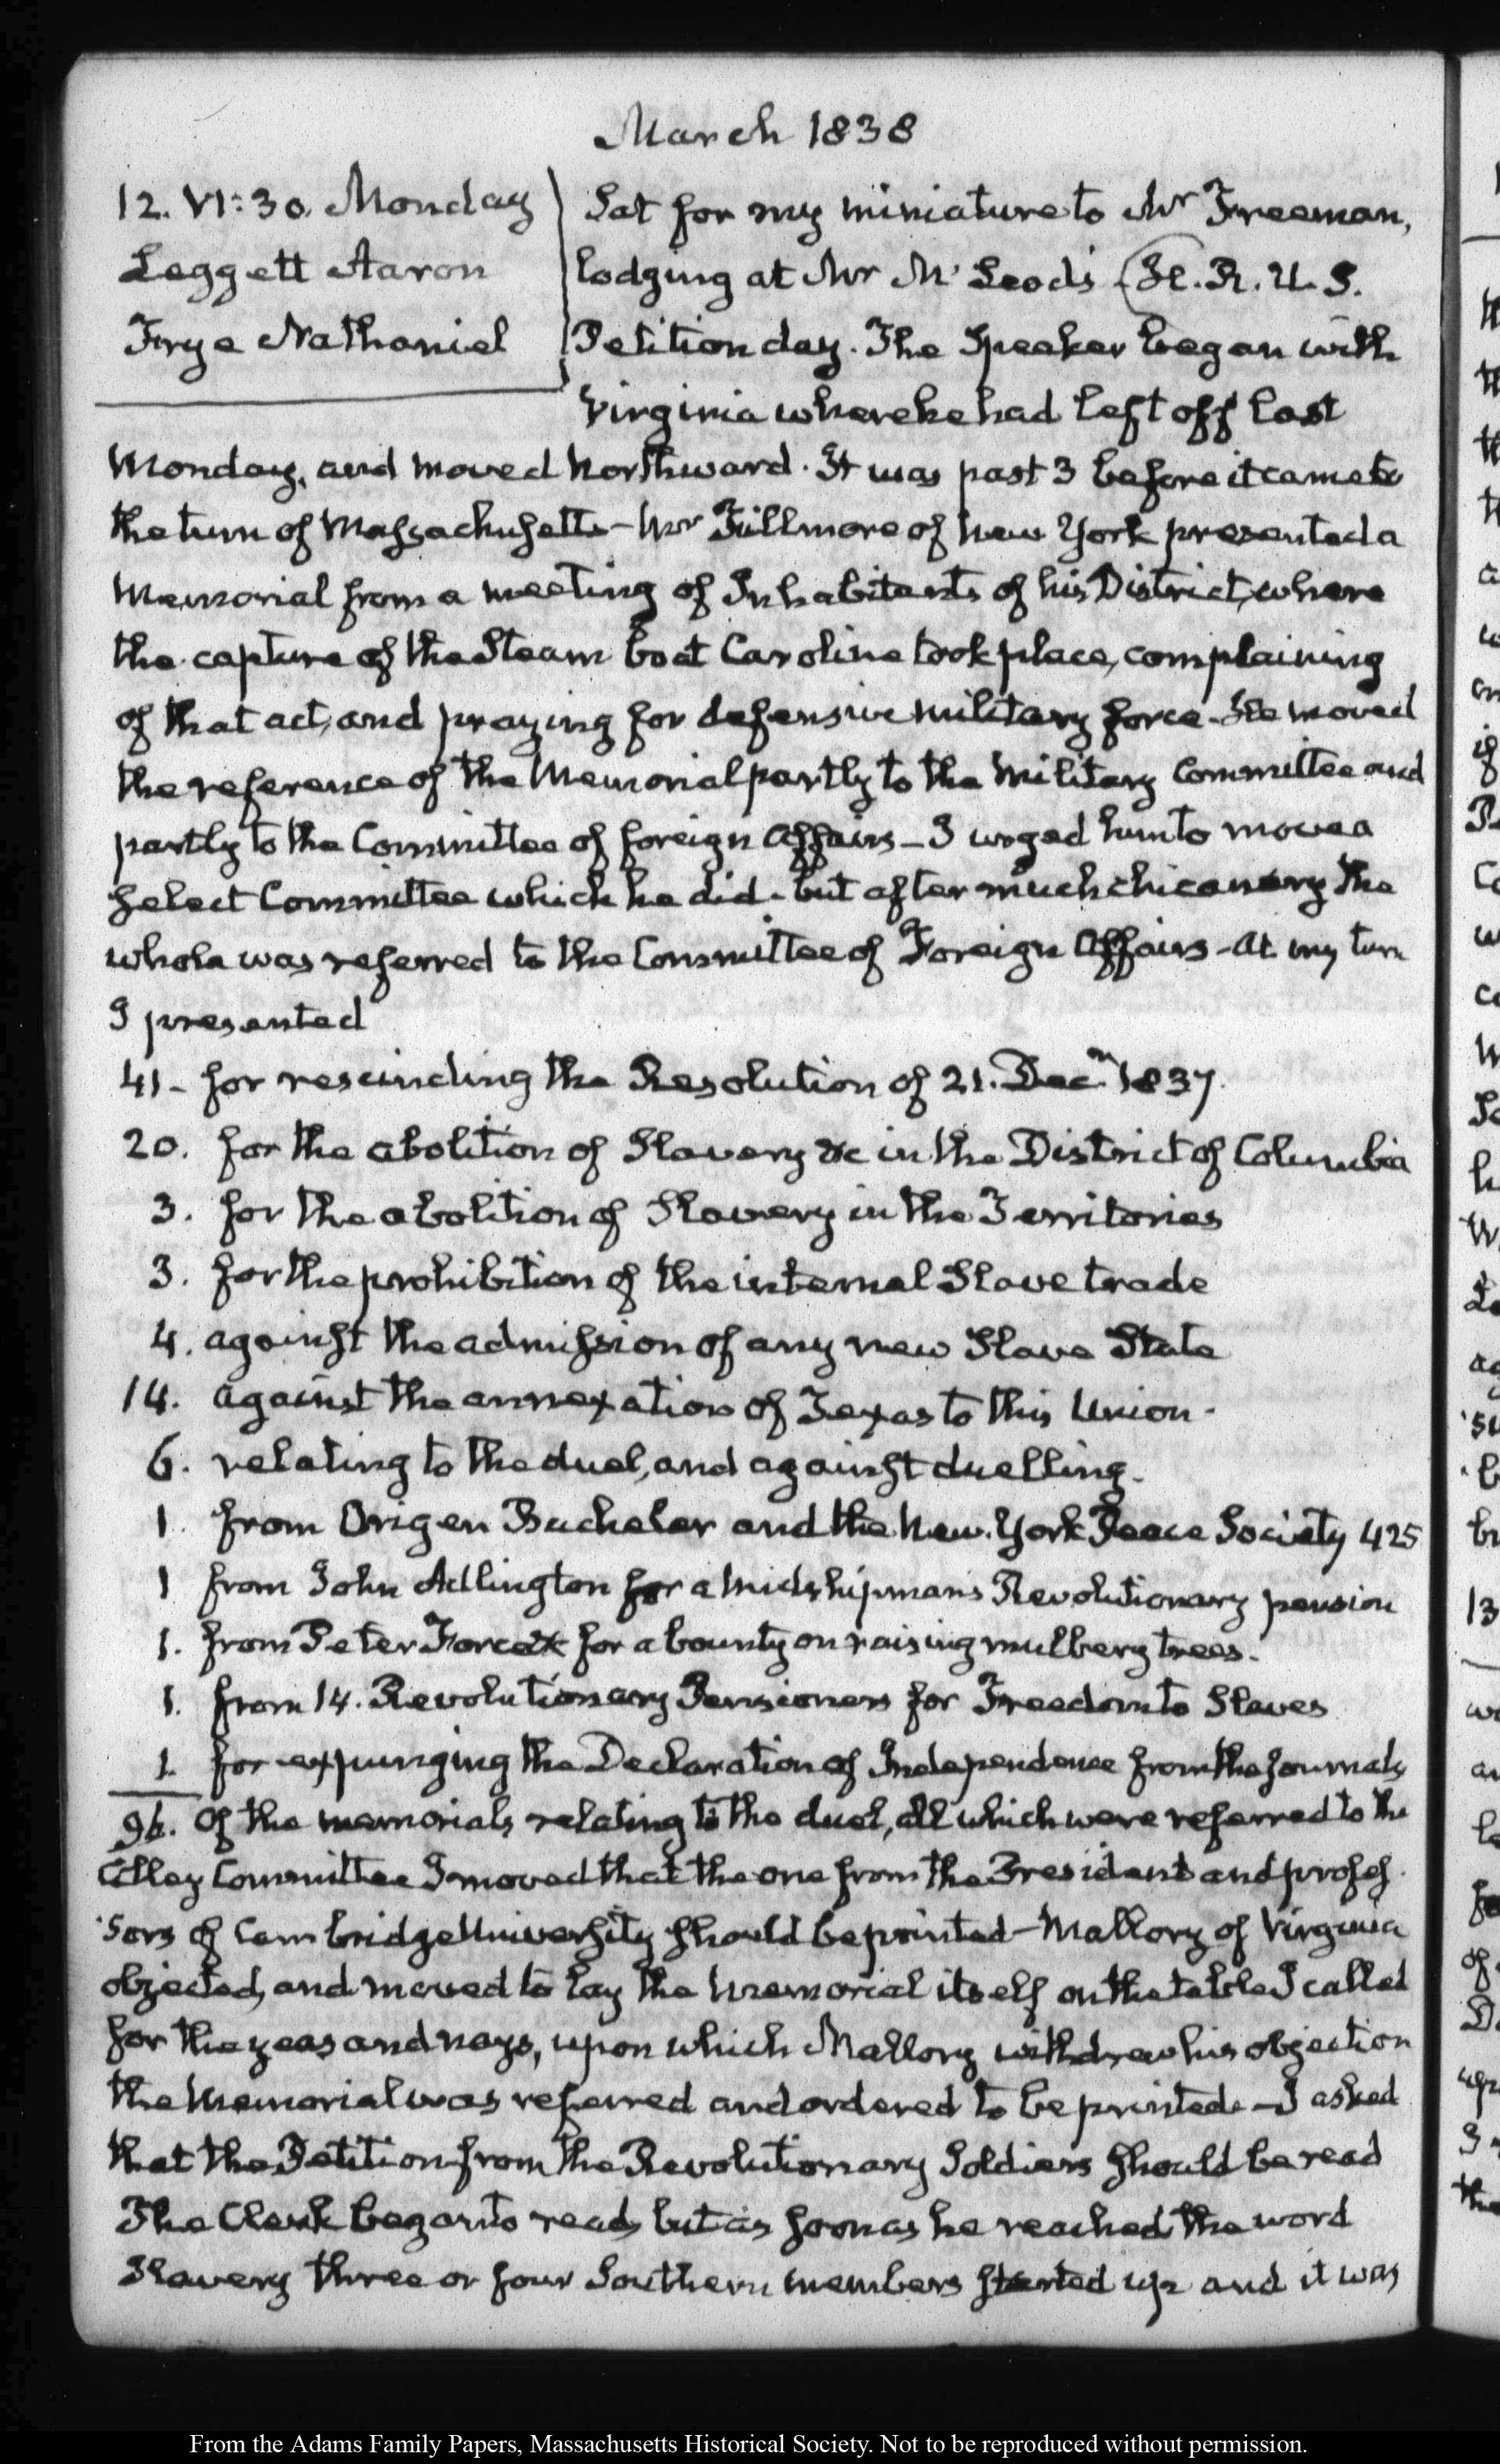 March 1838
12. VI:30. Monday
Leggett Aaron
Frye Nathaniel
Sat for my miniature to Mr Freeman,
lodging at Mr McLeod's (H. R. U. S.
Petition day. The Speaker began with
Virginia where he had left off last
Monday, and moved Northward. It was past 3 before it came to
the turn of Massachusetts - Mr Fillmore of New York presented a
Memorial from a meeting of Inhabitants of his District, where
the capture of the Steam boat Caroline took place, complaining
of that act, and praying for defensive military force. He moved
the reference of the Memorial partly to the Military Committee and
partly to the Committee of foreign Affairs - I urged him to move a
select Committee which he did - but after much chicanery the
whole was referred to the Committee of Foreign Affairs - At my turn
I presented
41 - for rescinding the Resolution of 21. Decr 1837.
20. for the abolition of Slavery &c in the District of Columbia
3. for the abolition of Slavery in the Territories
3. for the prohibition of the internal Slave trade
4. against the admission of any new Slave State
14. against the annexation of Texas to this Union -
6. relating to the duel, and against duelling.
1. from Origen Bacheler and the New York Peace Society 425
1 from John Adlington for a Midshipman's Revolutionary pension
1. from Peter Force for a bounty on raising mulbery trees.
1. from 14. Revolutionary Pensioners for Freedom to Slaves
1. for expunging the Declaration of Independence from the Journals
96. Of the memorials relating to the duel, all which were referred to the
Cilley Committee I moved that the one from the President and profes-
sors of Cambridge University should be printed - Mallory of Virginia
objected, and moved to lay the Memorial itself on the table I called
for the yeas and nays, upon which Mallory withdrew his objection
the Memorial was referred and ordered to be printed - I asked
that the Petition from the Revolutionary Soldiers should be read
The Clerk began to read, but as soon as he reached the word
Slavery three or four Southern members started up and it was
From the Adams Family Papers, Massachusetts Historical Society. Not to be reproduced without permission.